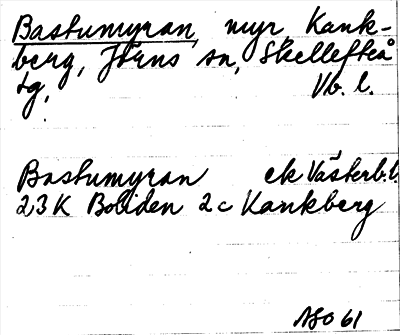 Bastumyran, myr, Kank-
berg, Jörns sn, Skellefteå
tg. Vb. l.
Bastumyran ek Västerb.l.
23K Boliden 2c Kankberg
NSO 61